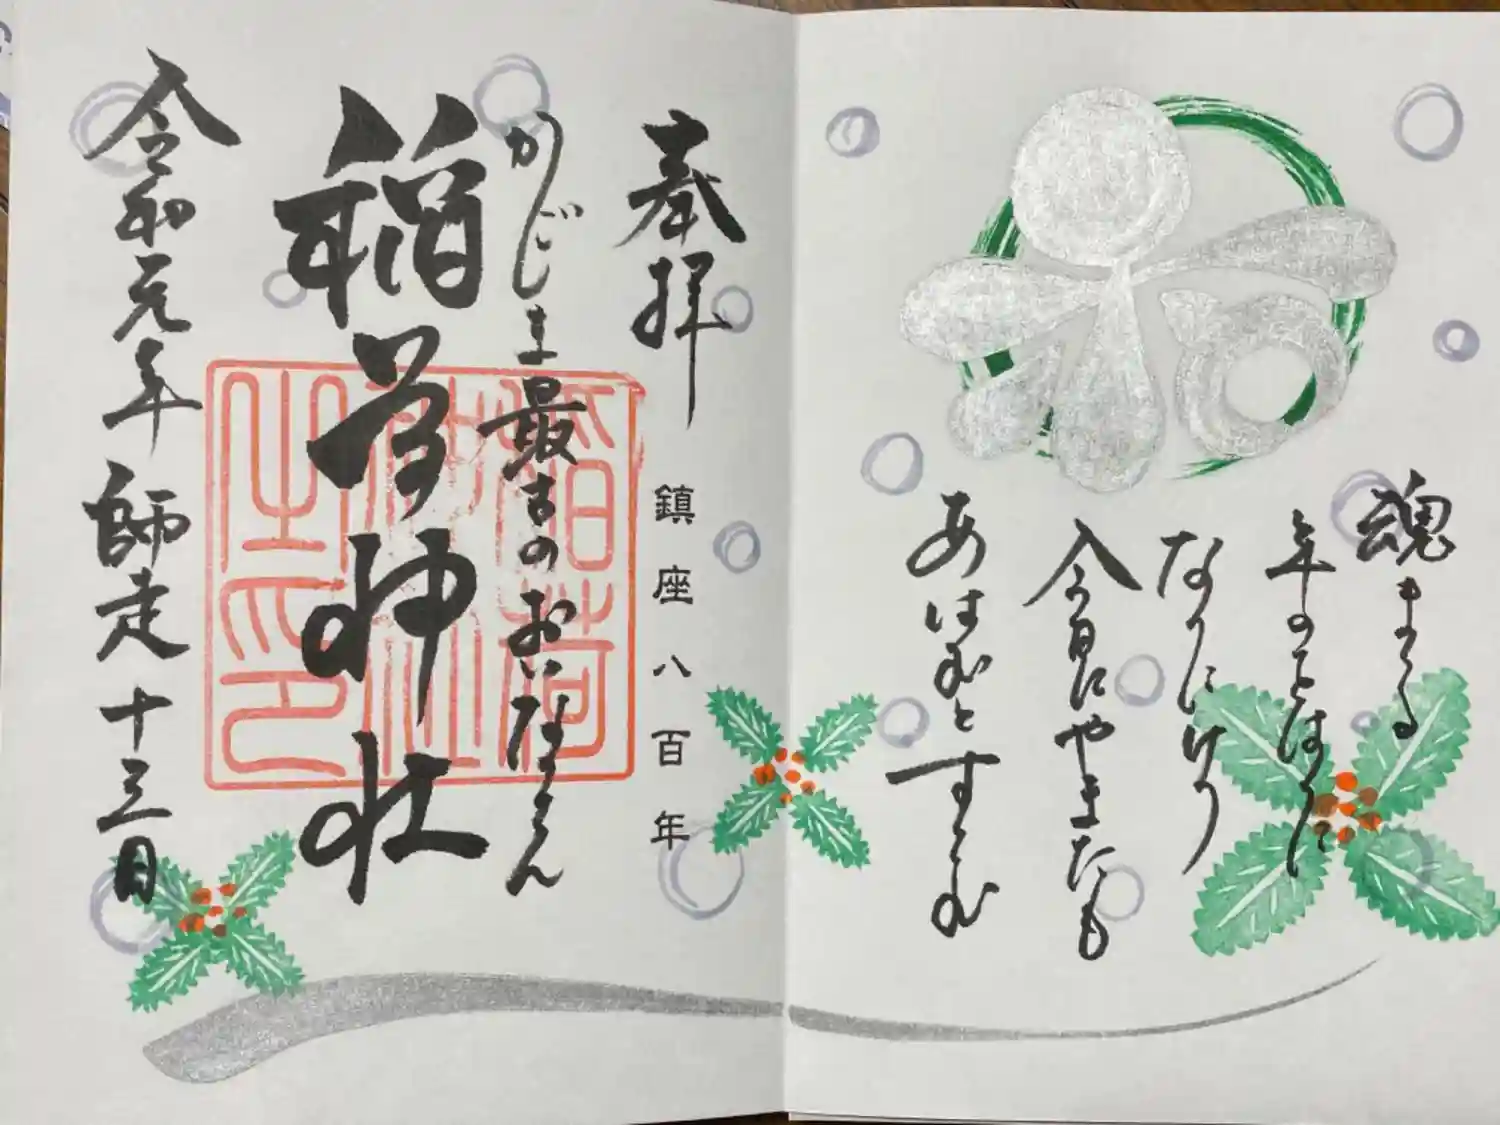 魂まつる
年のをはりに
なりにけり
今日にやまたも
あはむとすらむ
奉拝
鎮座八百年
かじま最古のおいなりさん
稲荷神社
稲荷
神社
之印
令和元年師走十三日